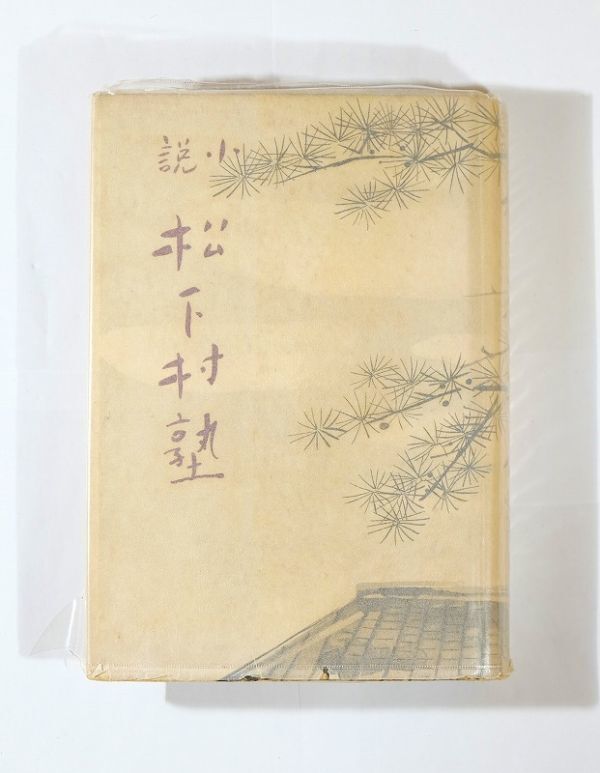 小説
松下村塾